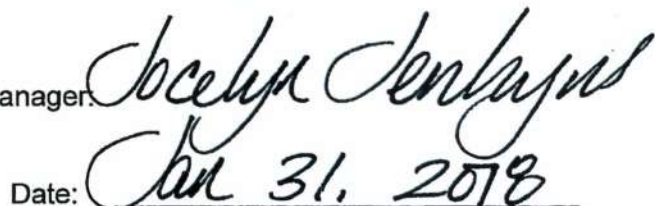 anager: Jocelyn Jenkyns
Date: Jan 31, 2018